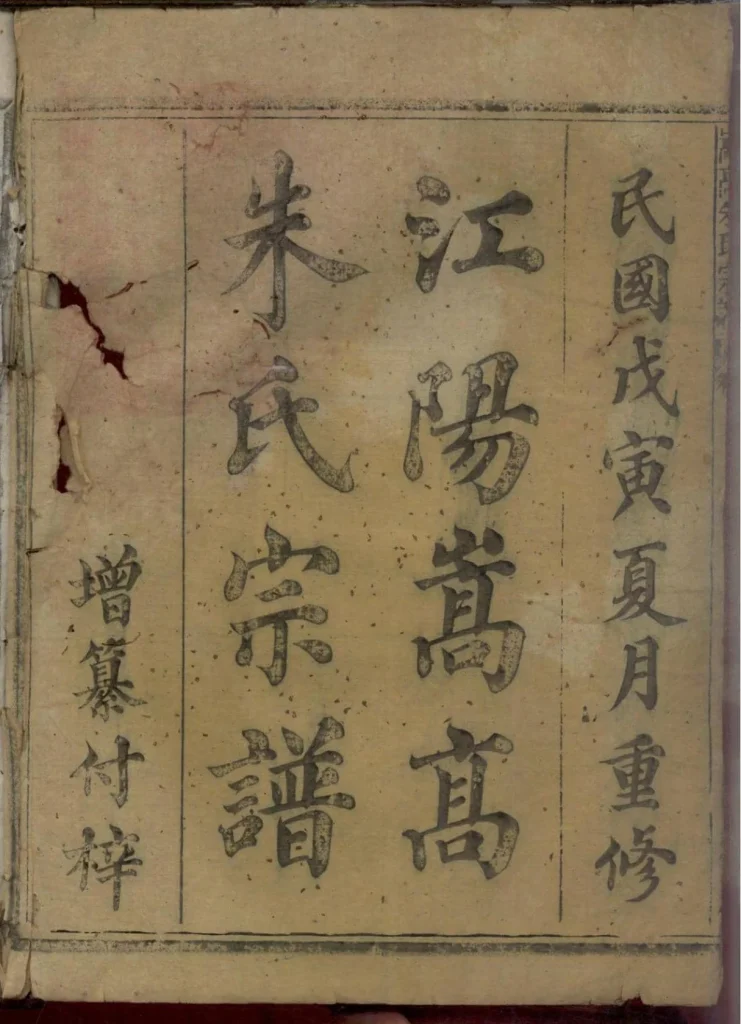 民國戊寅夏月重修
江陽嵩髙
朱氏宗譜
增纂付梓